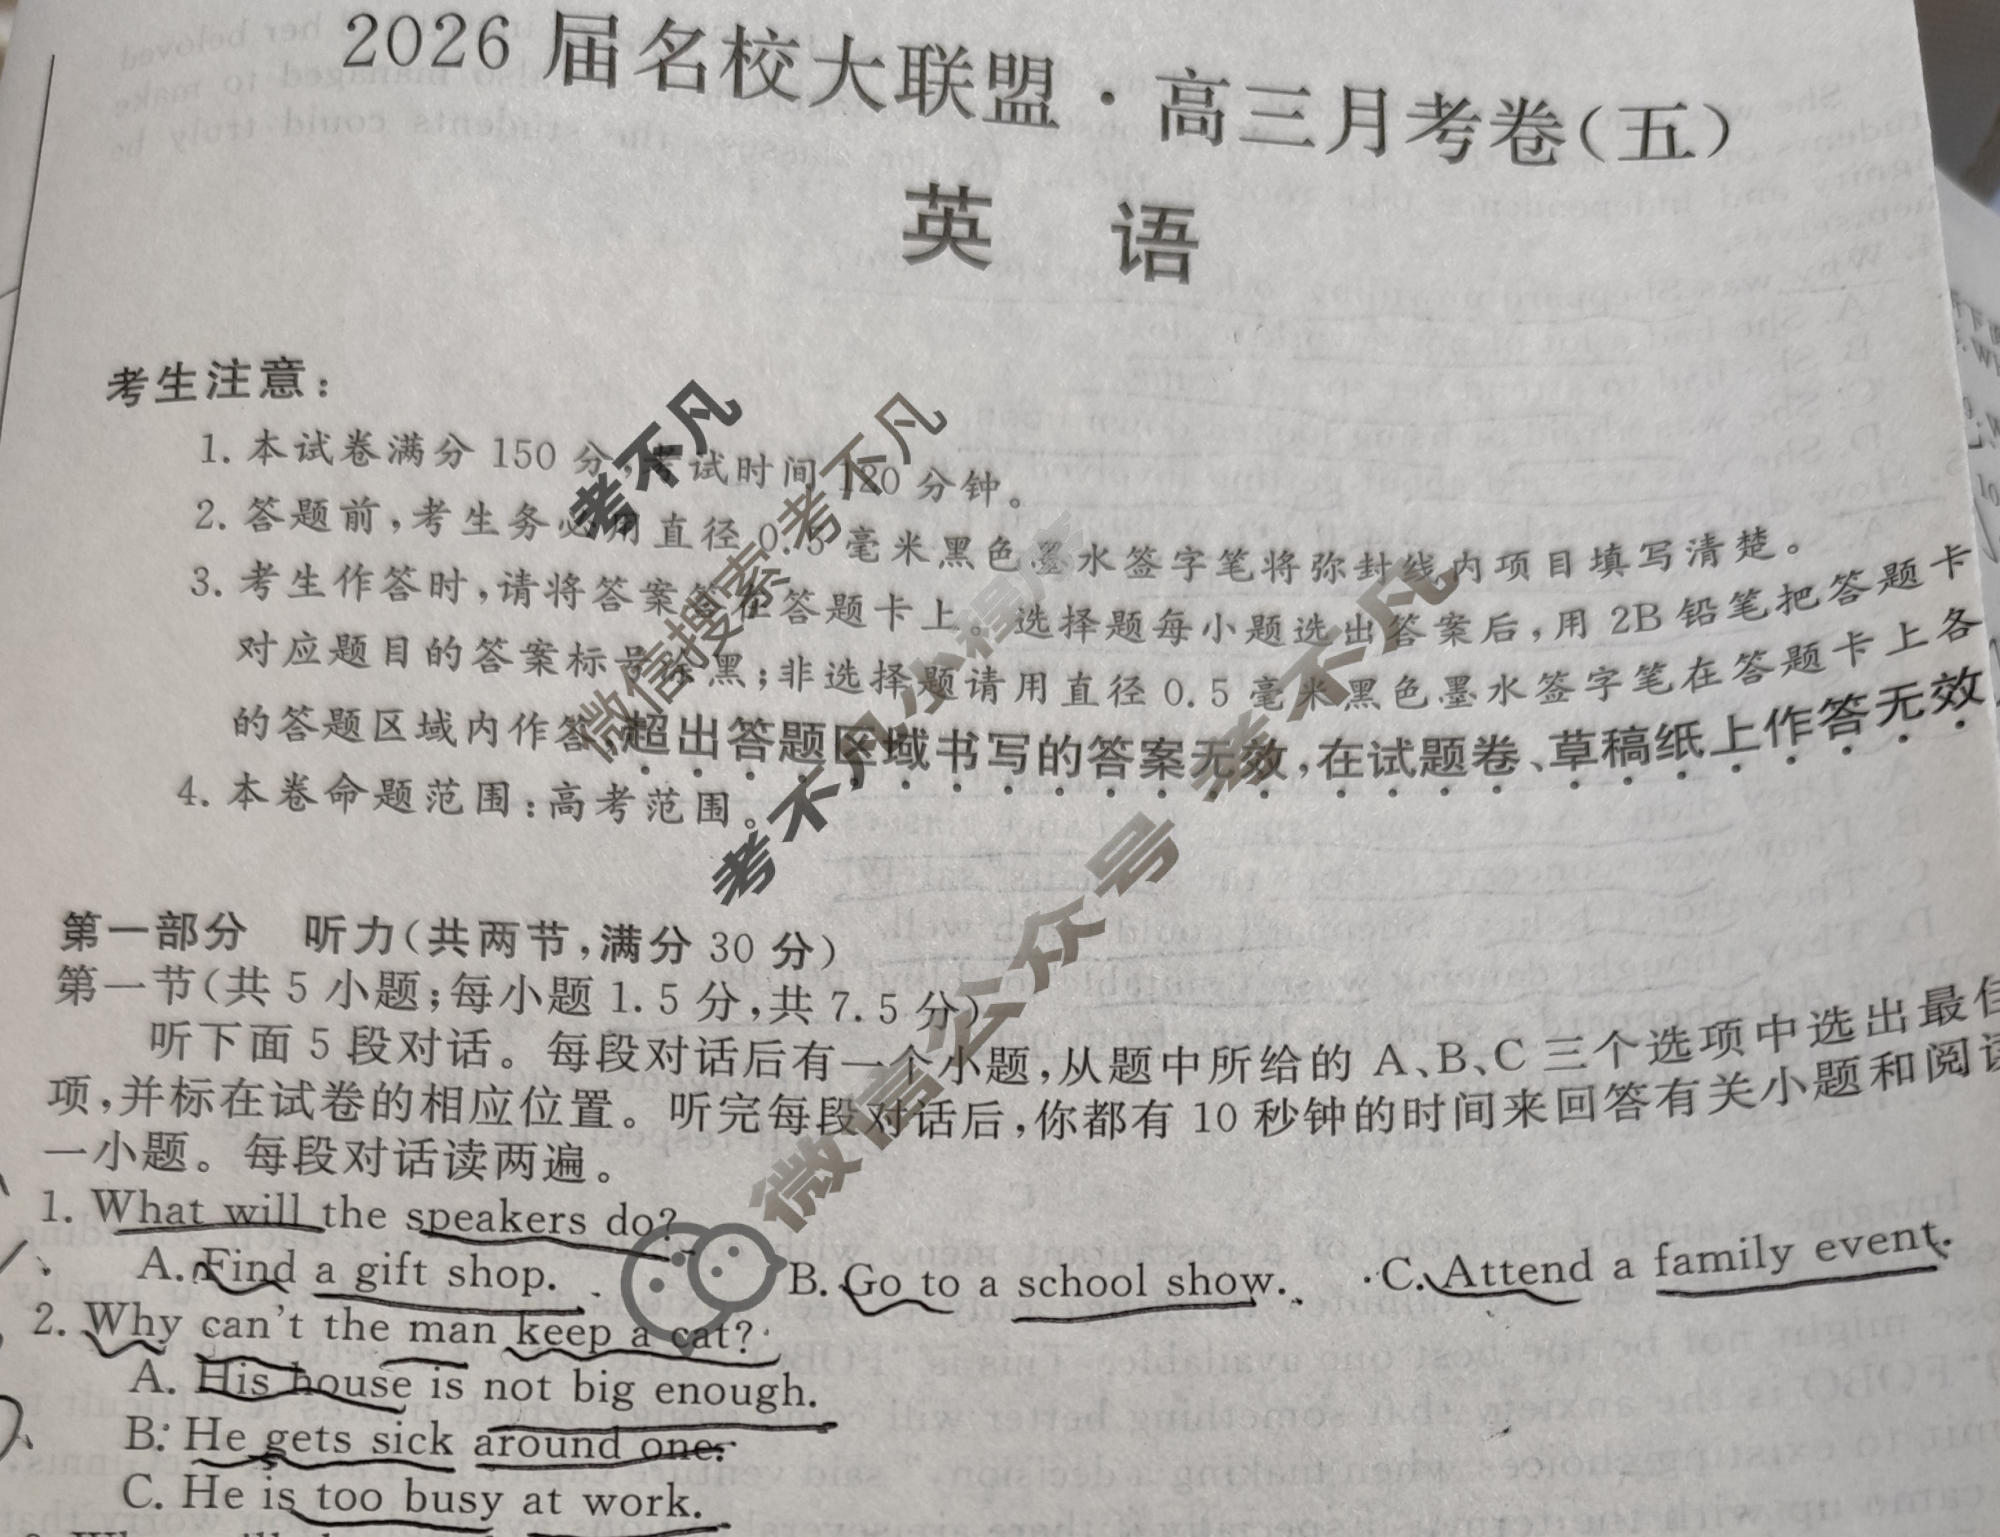 2026届名校大联盟·高三月考卷(五)
英 语
考生注意:
1. 本试卷满分 150 分,考试时间 120 分钟。
2. 答题前,考生务必用直径 0.5 毫米黑色墨水签字笔将弥封线内项目填写清楚。
3. 考生作答时,请将答案答在答题卡上。选择题每小题选出答案后,用 2B 铅笔把答题卡
对应题目的答案标号涂黑;非选择题请用直径 0.5 毫米黑色墨水签字笔在答题卡上各
的答题区域内作答,超出答题区域书写的答案无效,在试题卷、草稿纸上作答无效
4. 本卷命题范围:高考范围。
第一部分 听力(共两节,满分 30 分)
第一节(共 5 小题;每小题 1.5 分,共 7.5 分)
听下面 5 段对话。每段对话后有一个小题,从题中所给的 A、B、C 三个选项中选出最佳
项,并标在试卷的相应位置。听完每段对话后,你都有 10 秒钟的时间来回答有关小题和阅读
一小题。每段对话读两遍。
1. What will the speakers do?
A. Find a gift shop. B. Go to a school show. C. Attend a family event.
2. Why can't the man keep a cat?
A. His house is not big enough.
B. He gets sick around one.
C. He is too busy at work.
考不凡
微信搜索 考不凡
考不凡小程序
微信公众号 考不凡